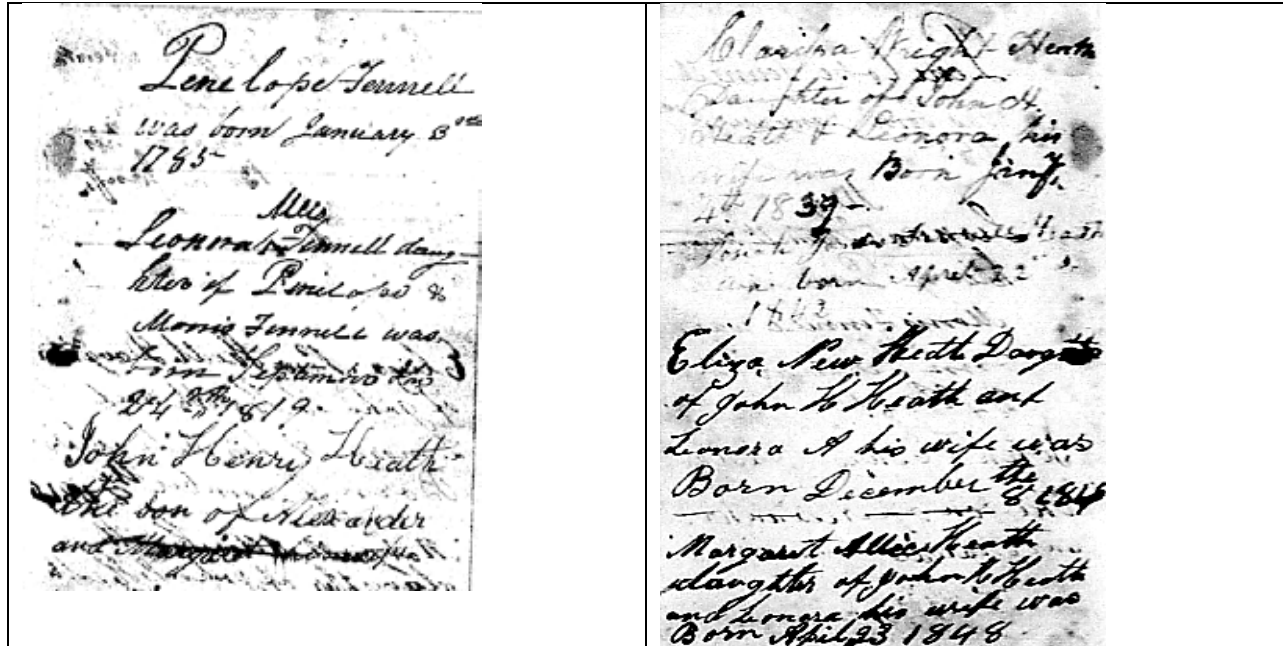 Penelope Fennell
was born January 3rd
1785
Allis
Leonora Fennell daug-
hter of Penelope &
Morris Fennell was
born September the
24th 1819
John Henry Heath
the son of Alexander
and
Clarissa Wright Heath
Daughter of John H.
Heath & Leonora, his
wife was Born Jany,
4th 1839
Heath
born April 22
1843
Eliza New Heath Daughter
of John H Heath and
Leonora A his wife was
Born December the
Margaret Allice Heath
daughter of John H Heath
and Leonora his wife was
Born April 23 1848